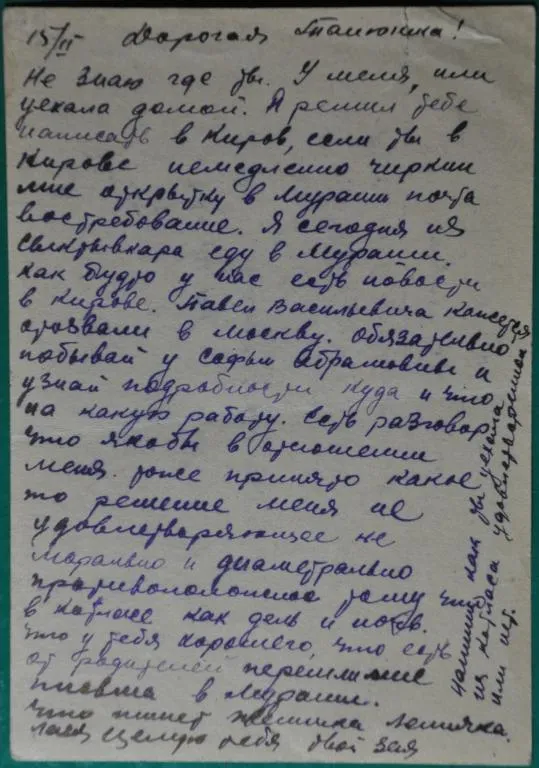 15/II Дорогая Танюшка!
Не знаю где ты. У меня, или
уехала домой. Я решил тебе
написать в Киров, если ты в
Кирове немедленно чиркни
мне открытку в Мураши почта
востребование. Я сегодня из
Сыктывкара еду в Мураши.
как будто у нас есть новости
в Кирове. Павел Васильевича
отозвали в Москву. Обязательно
побывай у Софьи Абрамовны и
узнай подробности куда и что
на какую работу. Есть разговор
что якобы в отношении
меня тоже принято какое
то решение меня не
удовлетворяющее не
морально и диаметрально
противоположное тому что
в Котласе как день и ночь.
что у тебя хорошего, что есть
от родителей перешли мне
письма в Мураши.
Что пишет
целую тебя твой
напиши как ты уехала
из Котласа удовлетворенной
или нет.